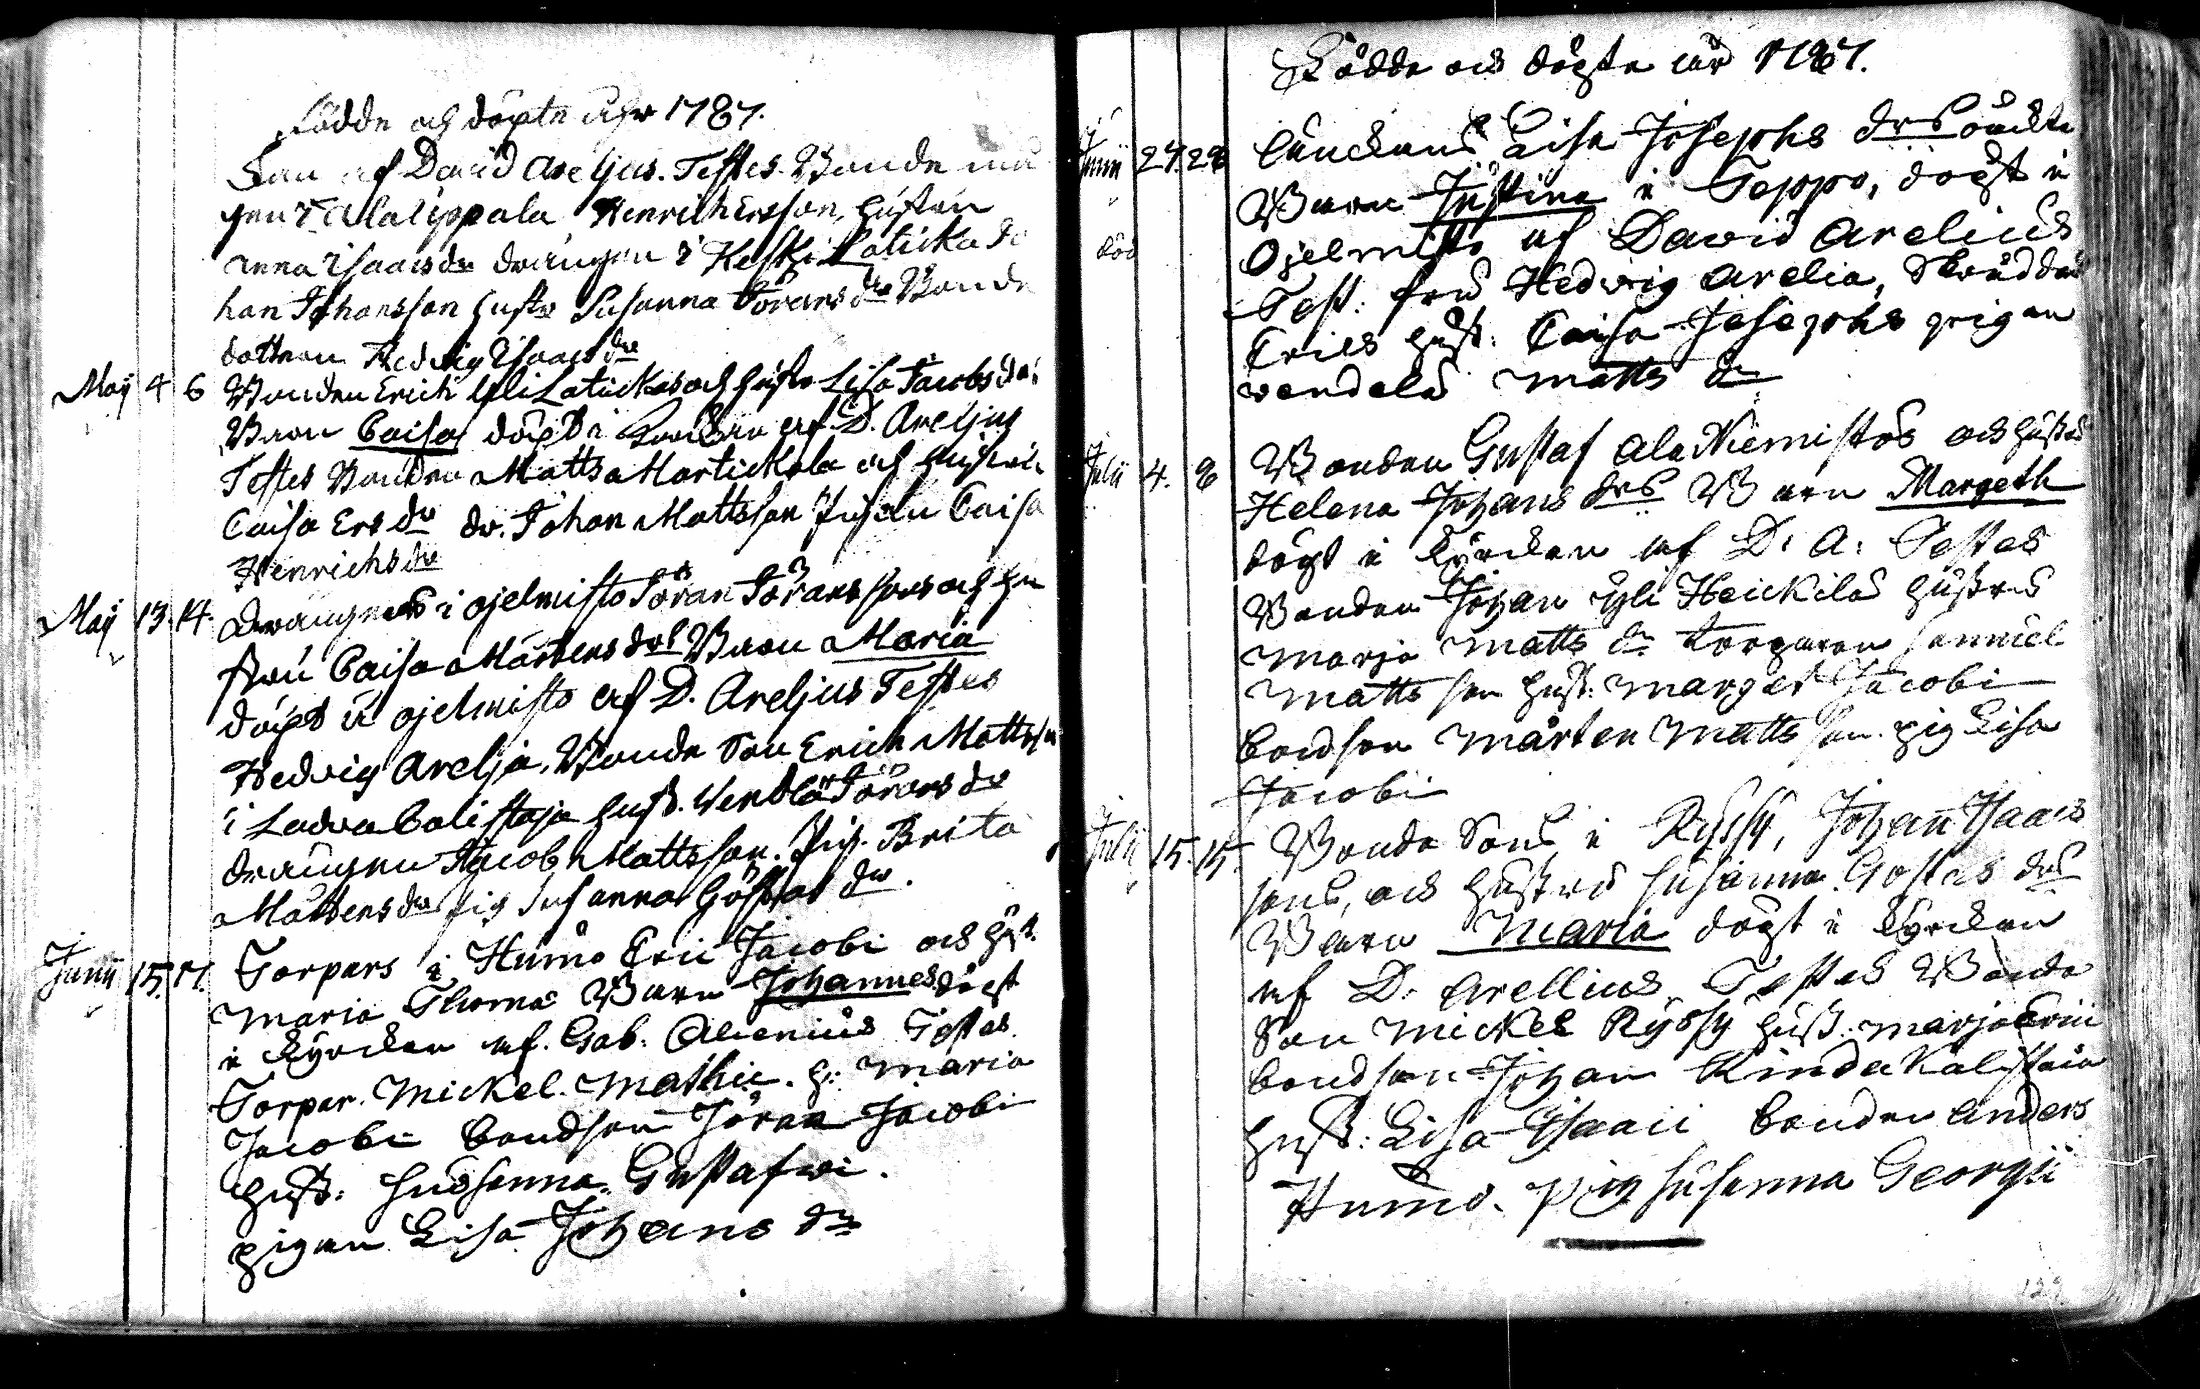 Födde och döpte åhr 1787.
Son af David Areljus. Testes. Bonde må
gen i Alalippala Henrich Ersson, hustrun
Anna Isaacs dr drängen i Keski Laticka Jo
han Johansson hustr Susanna Jörans dr Bonde
dottren Hedvig Isaacs dr
Maij 4 6 Bonden Erich Yli Latickas och hustr Lisa Jacobs drs
Barn Caisa döpt i Kyrckan af D. Areljus
Testes Bonden Matts Martickala och hustrun
Caisa Ers dr dr. Johan Mattsson Pigan Caisa
Henrichs dr
Maij 13 14. Drängens i Ojelmisto Jöran Jöranssons och hu
strun Caisa Mårtens drs Barn Maria
döpt i Ojelmisto af D. Areljus Testes
Hedvig Arelja, Bonde Son Erich Mattsson
i Ladvacalistaja hust. Vendla Jörans dr
drängen Jacob Mattsson. Pig. Brita
Mårtens dr Pig Susanna Göstas dr.
Junij 15. 17. Torpars i Humo Eric Jacobi och hust.
Maria Thomæ Barn Johannes döpt
i Kyrckan af. Gab. Alcenius Testes
Torpar. Mickel. Mathie. h: Maria
Jacobi bondson Jöran Jacobi
hust: Susanna Gustafvi.
pigan Lisa Johans dr

Födde och döpte år 1787.
Junij 27. 28 Lisa Josephs drs oäckta
Barn Justina i Seppo, döpt i
död Ojelmisto af David Arelius
Test: fru Hedvig Arelia, Skräddar
Erics hust: Caisa Josephs pigan
vendela Matts dr
Julij 4. 8 Bonden Gustaf Ala Niemistös och hustrus
Helena Johans drs Barn Margeth
döpt i Kyrckan af D: A: Testes
Bonden Johan Yli Heickilä hustru
Marja Matts dr torparen Samuel
Matts son hust: Marget Jacobi
bondson Mårten Matts son. pig Lisa
Jacobi
Julij 15. 15. Bonde Sons i Ryssy, Johan Isaacs
sons, och hustrus Susanna Gostas drs
Barn Maria döpt i Kyrckan
af D: Arellius Testes Bonde
Son Mickel Ryssy hust: Marja Erici
bondson Johan Rinda Kalistaia
hust: Lisa Isaaci bonden Anders
Humo. Pig Susanna Georgii
129